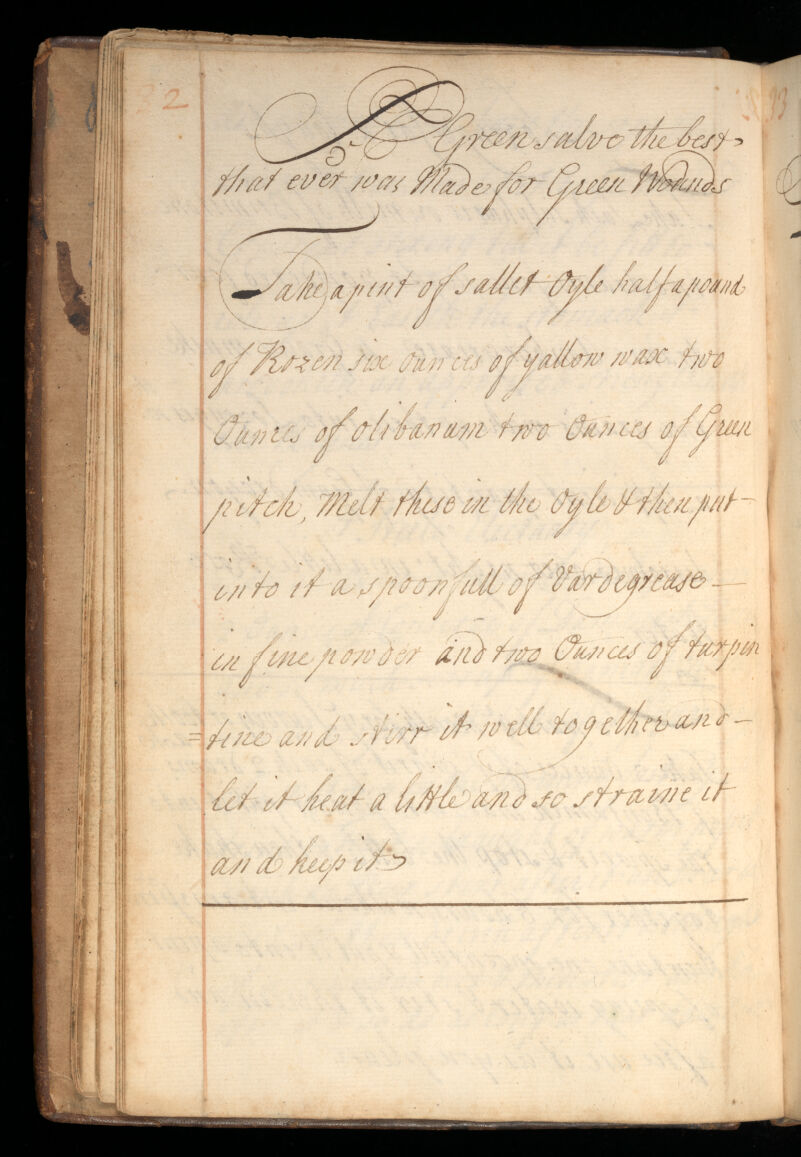 32
A Green salve the best
that ever was Made for Green Wounds
Take a pint of sallet Oyle half a pound
of Rozen six ounces of yallow wax two
Ounces of olibanum two Ounces of Green
pitch, Melt these in the Oyle & then put
into it a spoonfull of Vardegrease
in fine powder and two Ounces of turpin
=tine and stirr it well together and
let it heat a little and so straine it
and keep it
33